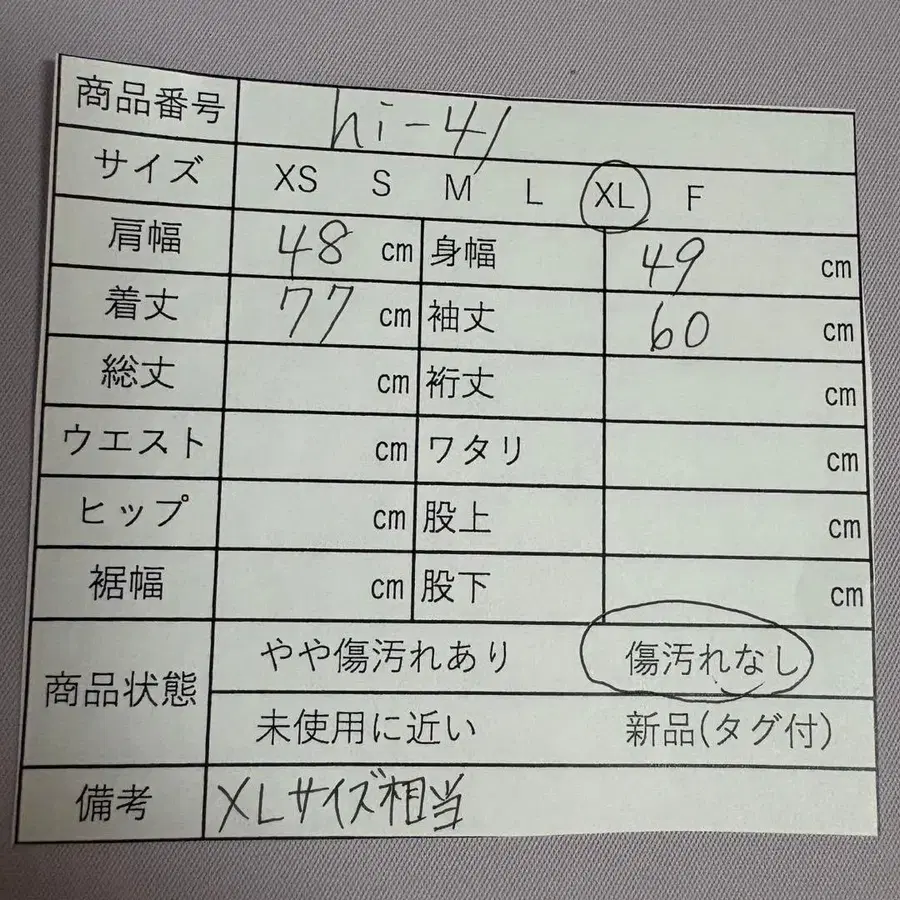 商品番号 hi-41
サイズ XS S M L XL F
肩幅 48 cm 身幅 49 cm
着丈 77 cm 袖丈 60 cm
総丈 cm 裄丈 cm
ウエスト cm ワタリ cm
ヒップ cm 股上 cm
裾幅 cm 股下 cm
商品状態 やや傷汚れあり 傷汚れなし
未使用に近い 新品(タグ付)
備考 XLサイズ相当